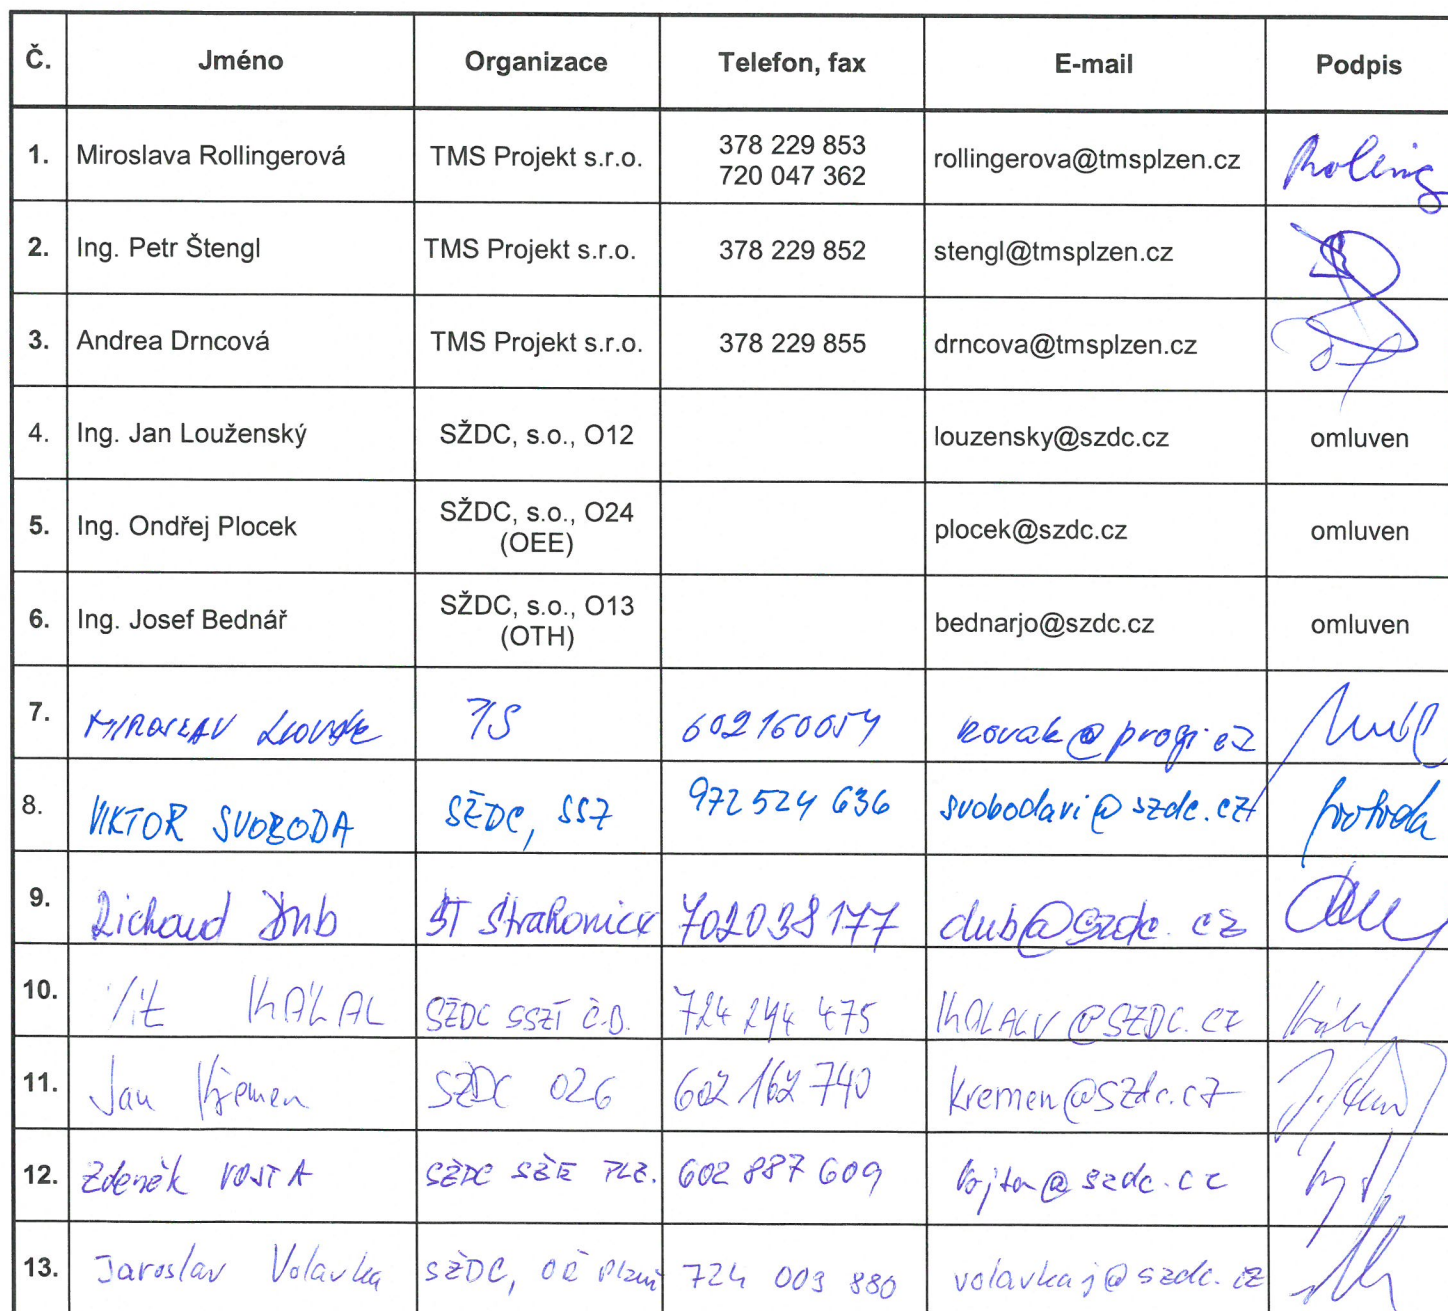 Č. Jméno Organizace Telefon, fax E-mail Podpis
1. Miroslava Rollingerová TMS Projekt s.r.o. 378 229 853 rollingerova@tmsplzen.cz
720 047 362
2. Ing. Petr Štengl TMS Projekt s.r.o. 378 229 852 stengl@tmsplzen.cz
3. Andrea Drncová TMS Projekt s.r.o. 378 229 855 drncova@tmsplzen.cz
4. Ing. Jan Louženský SŽDC, s.o., O12 louzensky@szdc.cz omluven
5. Ing. Ondřej Plocek SŽDC, s.o., O24 plocek@szdc.cz omluven
(OEE)
6. Ing. Josef Bednář SŽDC, s.o., O13 bednarjo@szdc.cz omluven
(OTH)
7. MIROSLAV 602160054
8. VIKTOR SVOBODA SŽDC, SSZ 972 524 636 svobodavi@szdc.cz svoboda
9. Richard Dub ST Strakonice 702038177 dub@szdc.cz
10. Vít KALAL SŽDC SSZT Č.B. 724 244 475 KALALV@SZDC.CZ
11. Jan Křemen SŽDC O26 602 162 740 kremen@szdc.cz
12. Zdeněk VOJTA SŽDC SŽE PLZ. 602 887 609 vojta@szdc.cz
13. Jaroslav Volavka SŽDC, OŘ Plzeň 724 003 880 volavkaj@szdc.cz